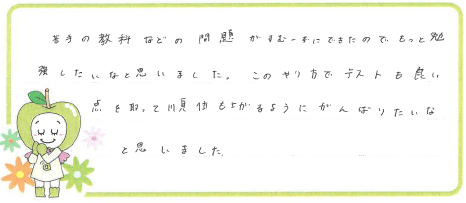 苦手の教科などの問題がすむーずにできたので、もっと勉
強したいなと思いました。このやり方でテストも良い
点を取って順位も上がるようにがんばりたいな
と思いました。